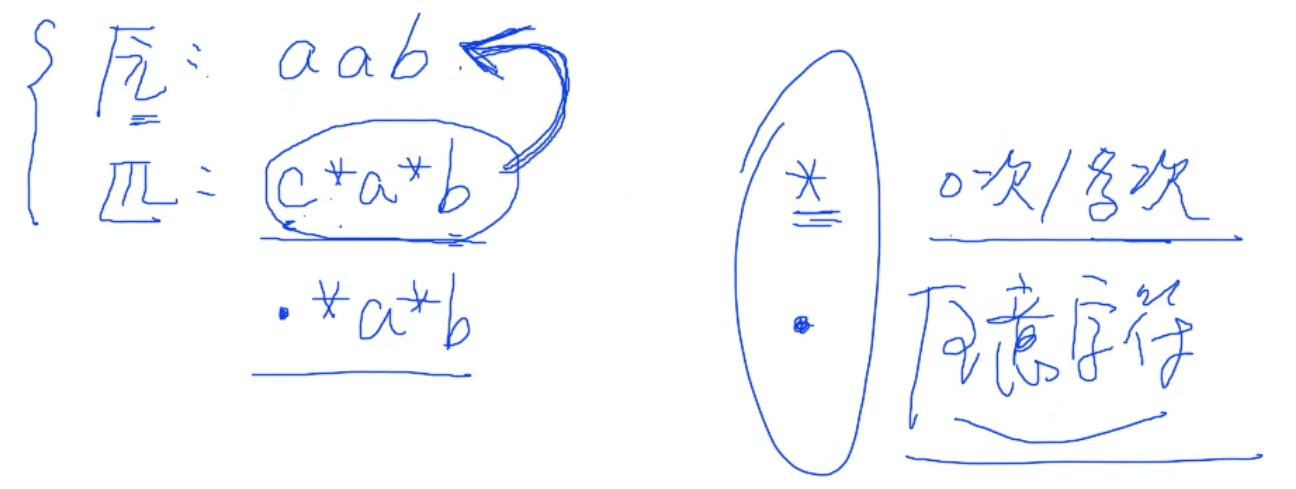 : aab
: c*a*b
.*a*b
* 0次/多次
. 任意字符